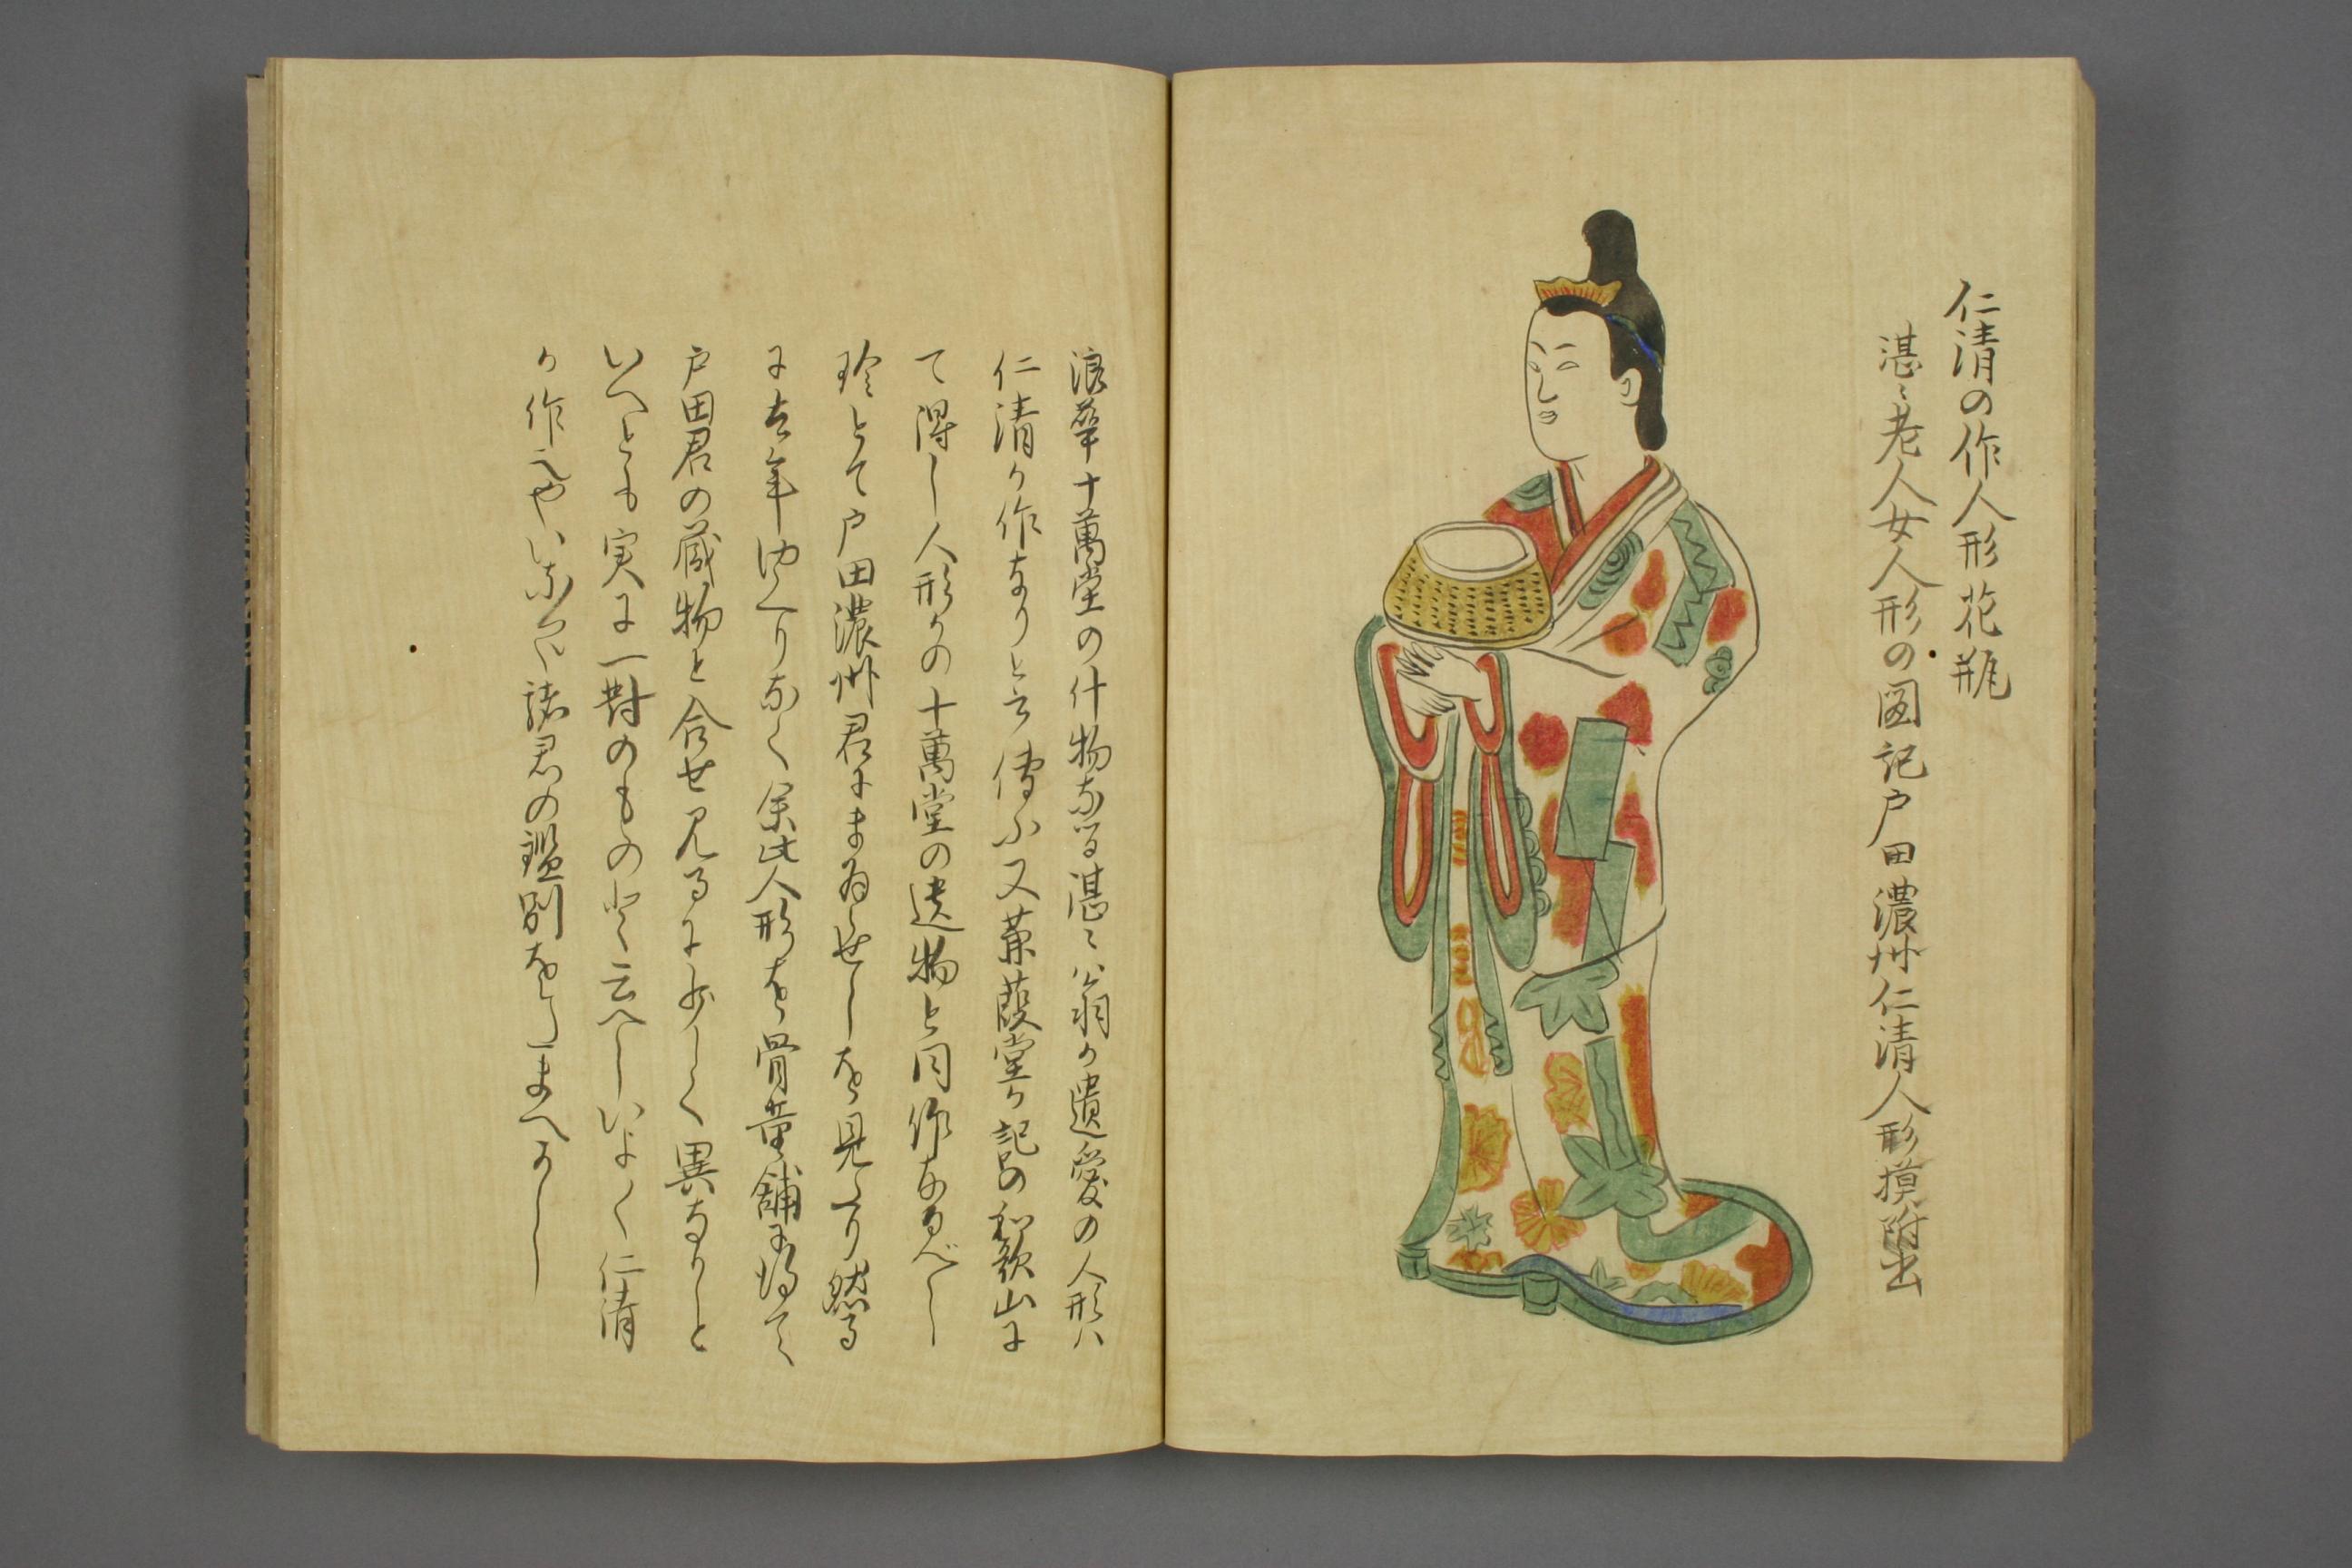 仁清の作人形花瓶
湛〻老人女人形の図記戸田濃州仁清人形摸附出
浪華十萬堂の什物なる湛〻翁か遺愛の人形ハ
仁清か作なりと云傳ふ又蒹葭堂か記の和歌山に
て得し人形の十萬堂の遺物と同作なるべし
珍とて戸田濃州君にまゐせしを見たり然る
に去年ゆくりなく余此人形を骨董舗に得て
戸田君の蔵物と合せ見るに少しく異なりと
いへとも実に一對のものと云へしいよ〱仁清
か作にやいなや諸君の鑑別をこふまへ